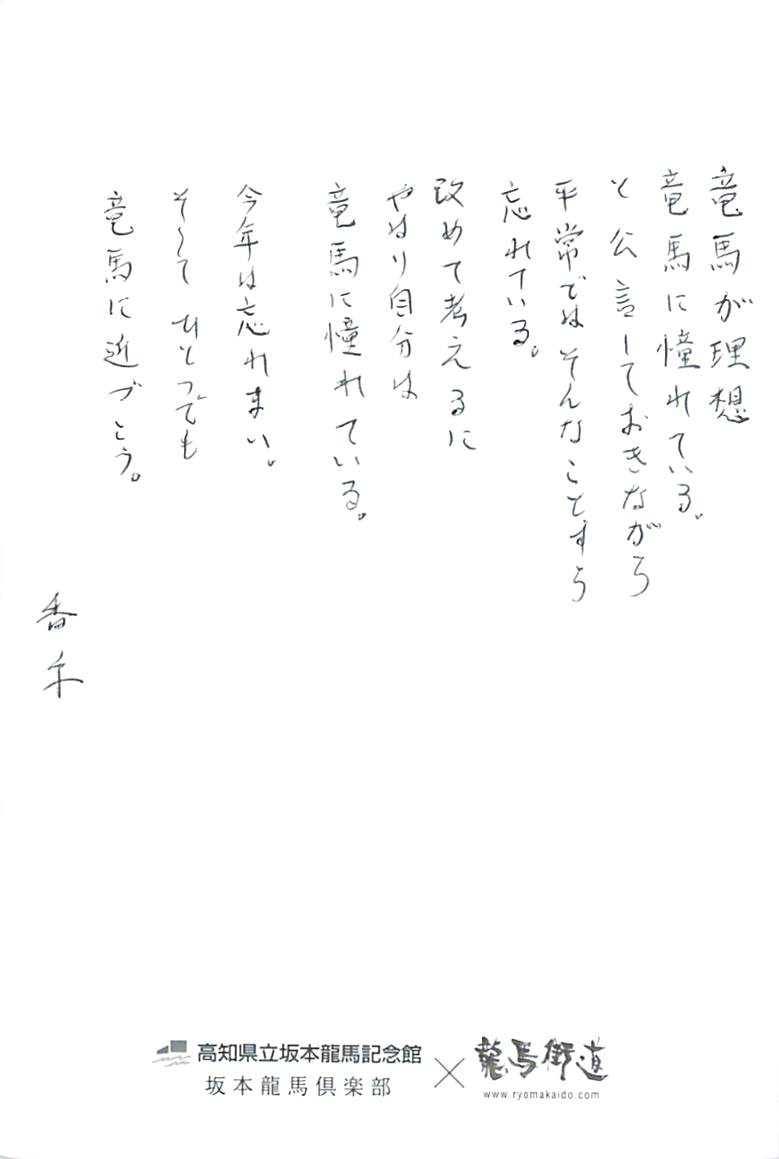 竜馬が理想
竜馬に憧れている。
と公言しておきながら
平常ではそんなことすら
忘れている。
改めて考えるに
やはり自分は
竜馬に憧れている。
今年は忘れまい。
そしてひとつでも
竜馬に近づこう。
香禾
高知県立坂本龍馬記念館
坂本龍馬倶楽部
×
龍馬街道
www.ryomakaido.com